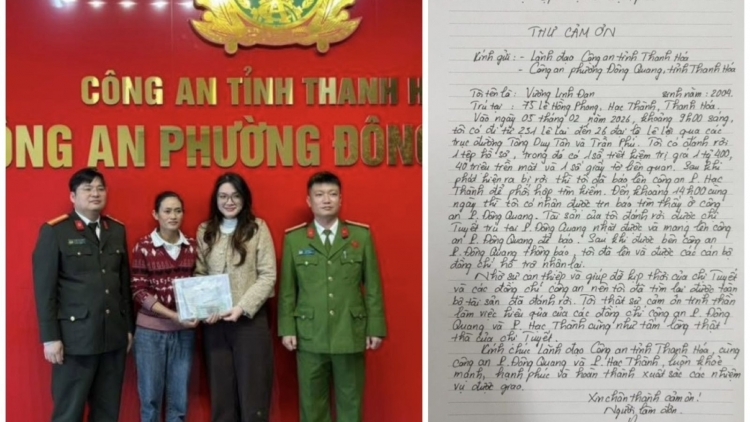 CÔNG AN TỈNH THANH H
ÔNG AN PHƯỜNG ĐÔNG
THƯ CẢM ƠN
Kính gửi: - Lãnh đạo Công an tỉnh Thanh Hóa
- Công an phường Đông Quang, tỉnh Thanh Hóa
Tôi tên là: Vương Linh Đan sinh năm: 2004.
Trú tại: 75 Lê Hồng Phong, Hạc Thành, Thanh Hóa.
Vào ngày 05 tháng 02 năm 2026, khoảng 9h00 sáng,
tôi có đi từ 251 Lê Lai đến 26 đại lộ Lê Lợi qua các
trục đường Tống Duy Tân và Trần Phú. Tôi có đánh rơi
1 tệp hồ sơ, trong đó có 1 sổ tiết kiệm trị giá 1 tỷ 400,
40 triệu tiền mặt và 1 số giấy tờ liên quan. Sau khi
phát hiện ra bị rơi thì tôi đã báo lên công an P. Hạc
Thành để phối hợp tìm kiếm. Đến khoảng 14h00 cùng
ngày thì tôi có nhận được tin báo tìm thấy ở công
an P. Đông Quang. Tài sản của tôi đánh rơi được chị
Tuyết trú tại P. Đông Quang nhặt được và mang lên công
an P. Đông Quang để báo. Sau khi được bên công an
P. Đông Quang thông báo, tôi đã lên và được các cán bộ
đồng chí hỗ trợ nhận lại.
Nhờ sự can thiệp và giúp đỡ kịp thời của chị Tuyết
và các đồng chí công an nên tôi đã tìm lại được toàn
bộ tài sản đã đánh rơi. Tôi thật sự cảm ơn tinh thần
làm việc hiệu quả của các đồng chí công an P. Đông
Quang và P. Hạc Thành cũng như tấm lòng thật
thà của chị Tuyết.
Kính chúc Lãnh đạo Công an tỉnh Thanh Hóa, cùng
công an P. Đông Quang và P. Hạc Thành, luôn khỏe
mạnh, hạnh phúc và hoàn thành xuất sắc các nhiệm
vụ được giao.
Xin chân thành cảm ơn!
Người làm đơn.